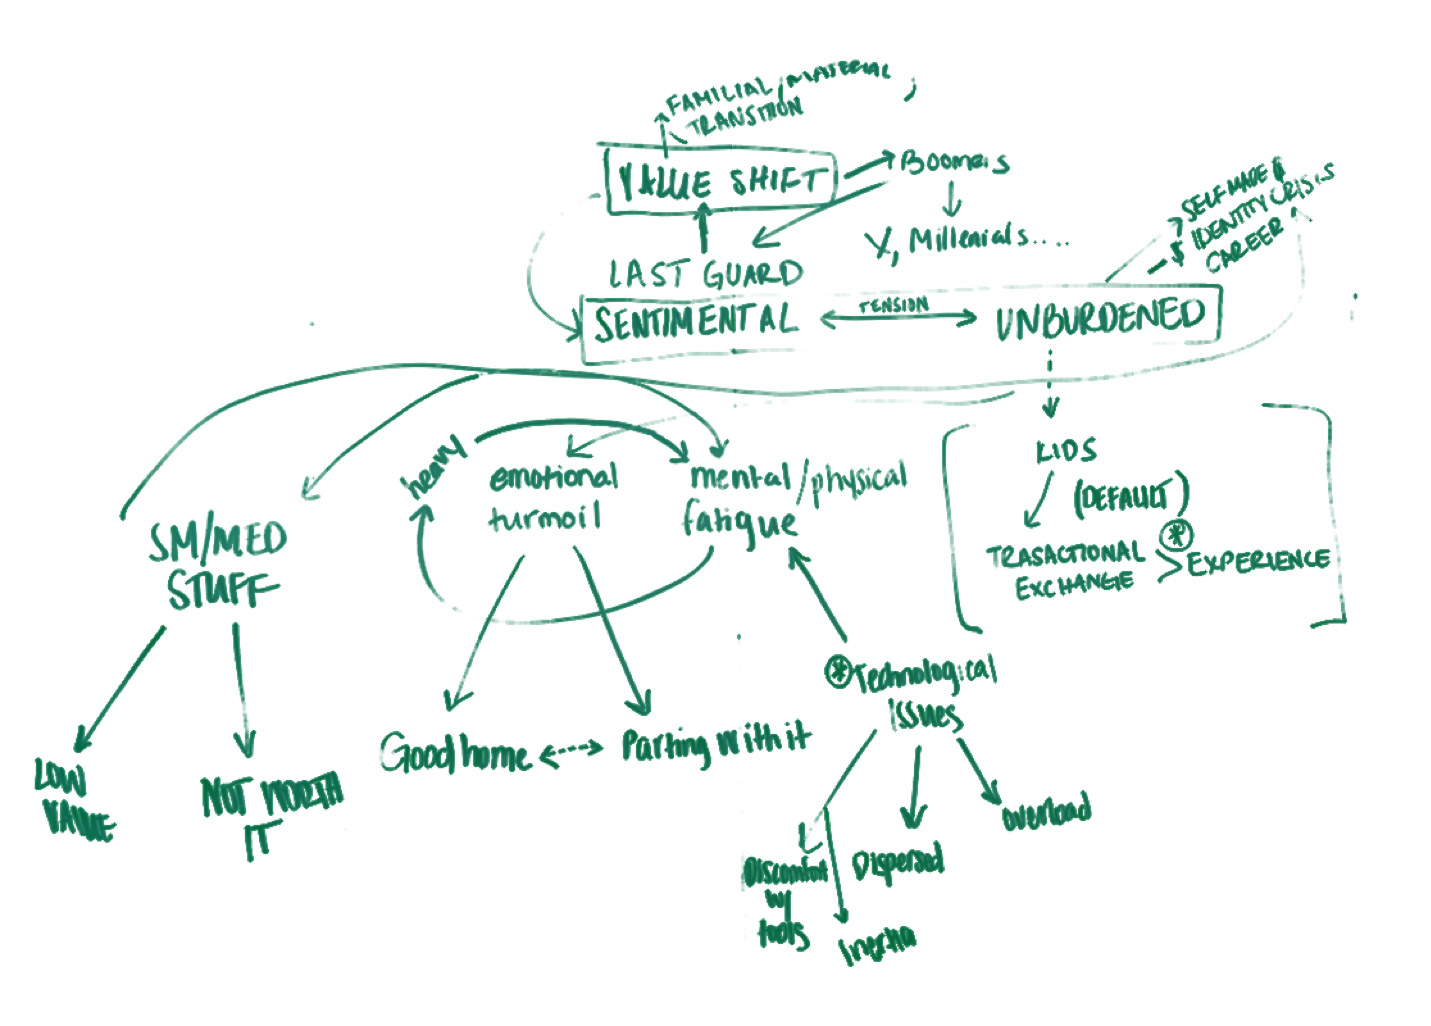 FAMILIAL, MATERIAL,
TRANSITION
VALUE SHIFT
Boomers
X, Millenials....
SELF MADE &
$ IDENTITY CRISIS
CAREER
LAST GUARD
SENTIMENTAL
TENSION
UNBURDENED
heavy
emotional
turmoil
mental/physical
fatigue
KIDS
(DEFAULT)
TRASACTIONAL
EXCHANGE
> * EXPERIENCE
SM/MED
STUFF
LOW
VALUE
NOT WORTH
IT
Good home
Parting with it
* Technological
issues
Discomfort
w/
tools
Inertia
Dispersed
overload